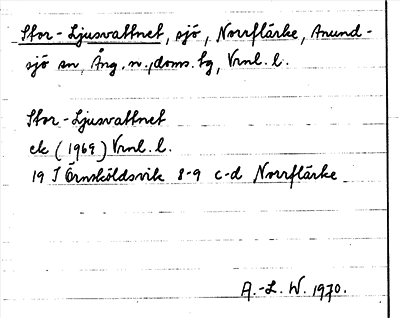 Stor-Ljusvattnet, sjö, Norrflärke, Anund-
sjö sn, Ång. n., doms. tg, Vrnl. l.
Stor-Ljusvattnet
ek (1969) Vrnl. l.
19 I Örnsköldsvik 8-9 c-d Norrflärke
A.-L. W. 1970.